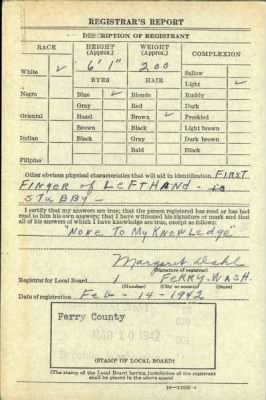 REGISTRAR'S REPORT
DESCRIPTION OF REGISTRANT
RACE HEIGHT (Approx.) WEIGHT (Approx.) COMPLEXION
White ✓ 6' 1" 200 Sallow
EYES HAIR Light ✓
Negro Blue ✓ Blonde Ruddy
Gray Red Dark
Oriental Hazel Brown ✓ Freckled
Brown Black Light brown
Indian Black Gray Dark brown
Bald Black
Filipino
Other obvious physical characteristics that will aid in identification FIRST
FINGER of LEFT HAND - is
STUBBY -
I certify that my answers are true; that the person registered has read or has had
read to him his own answers; that I have witnessed his signature or mark and that
all of his answers of which I have knowledge are true, except as follows:
"NONE To My KNowledge"
Margaret
(Signature of registrar)
Registrar for Local Board 1 FERRY, WASH.
(Number) (City or county) (State)
Date of registration Feb - 14 - 1942
Ferry County
MAR 10 1942
(STAMP OF LOCAL BOARD)
(The stamp of the Local Board having jurisdiction of the registrant
shall be placed in the above space)